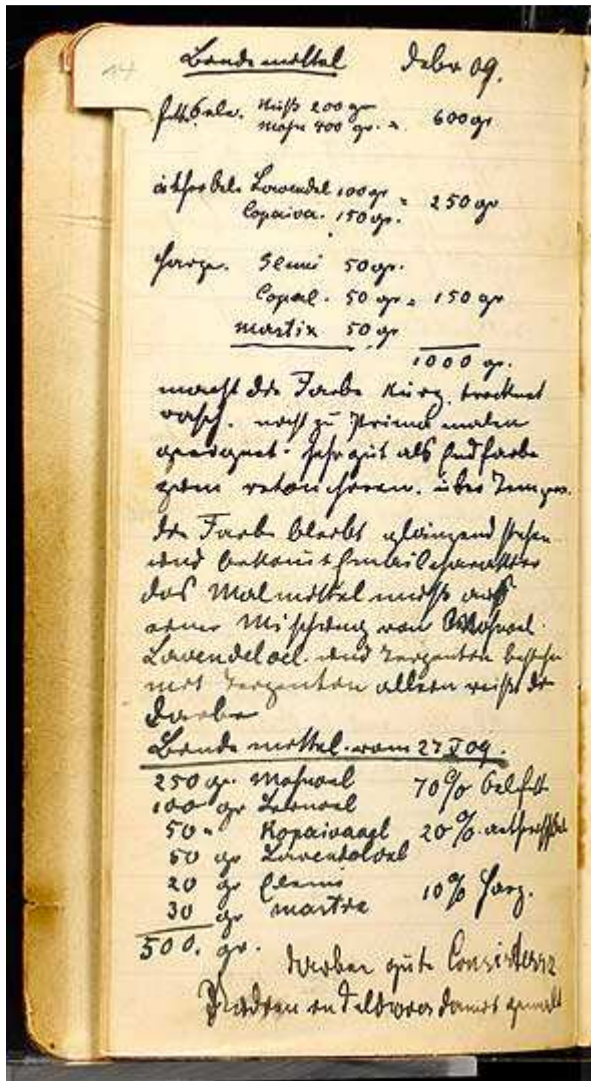 14
Bindemittel Febr 09.
fette Oele. Nuß 200 gr
Mohn 400 gr. = 600 gr
äther Oele Lavendel 100 gr = 250 gr
Copaiva. 150 gr.
Harze. Elemi 50 gr.
Copal. 50 gr = 150 gr
Mastix 50 gr
1000 gr.
macht die Farbe kurz, trocknet
rasch. nicht zu Prima malen
geeignet. sehr gut als Endfarbe
zum retouchieren. über Tempera.
die Farbe bleibt glänzend stehen
und bekomt Emailcharakter
das Malmittel muß aus
einer Mischung von Mohnoel.
Lavendeloel. und Terpentin bestehn
mit Terpentin allein reißt die
Farbe
Bindemittel. vom 27 I 09.
250 gr. Mohnoel 70% Oelfett
100 gr Leinoel
50 " Kopaivaoel 20%
50 gr Lavendeloel
20 gr Elemi
30 gr Mastix 10% Harz.
500. gr.
Farben gute Consistenz
damit gemalt